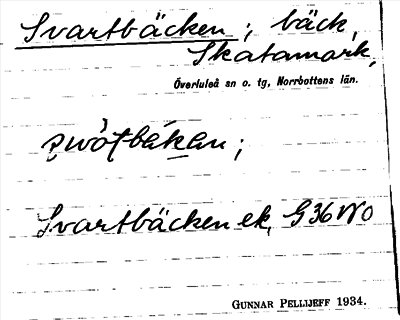 Svartbäcken; bäck,
Skatamark,
Överluleå sn o. tg, Norrbottens län.
Svartbäcken ek. G36NO
GUNNAR PELLIJEFF 1934.